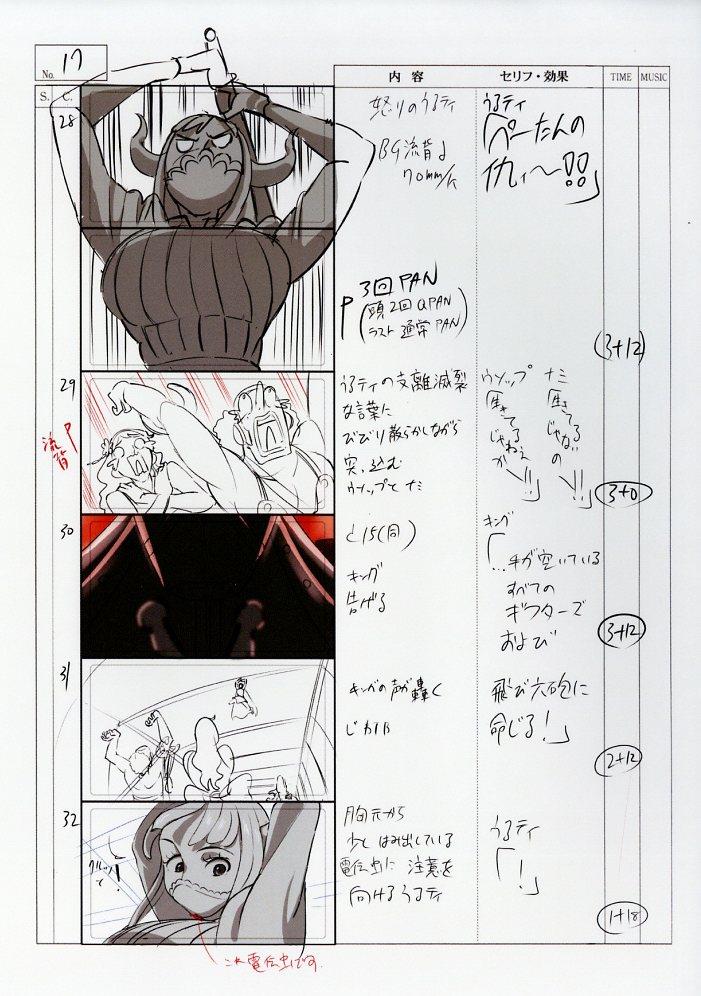 No. 17
S. C. 内容 セリフ・効果 TIME MUSIC
28
怒りのうるティ
BG流背↓
70mm/K
うるティ
「ぺーたんの
仇ィ〜!!」
P 3回PAN
(頭2回QPAN
ラスト通常PAN)
(3+12)
29
流背 P
うるティの支離滅裂
な言葉に
びびり散らかしながら
突っ込む
ウソップとナミ
ナミ
「生きてるじゃないの〜!!」
ウソップ
「生きてるじゃねェか〜!!」
(3+0)
30
C15(同)
キング
告げる
キング
「…手が空いている
すべての
ギフターズ
および
(3+12)
31
キングの声が轟く
じわFIX
飛び六砲に
命じる!」
(2+12)
32
胸元から
少しはみ出している
電伝虫に注意を
向けるうるティ
うるティ
「!」
(1+18)
これ電伝虫です。